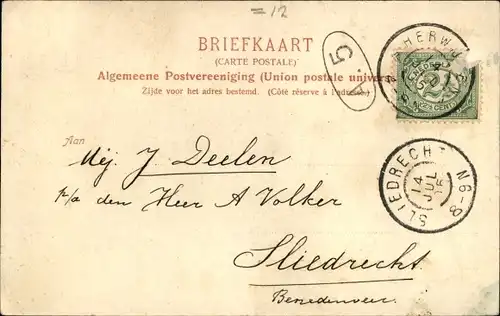 =12
BRIEFKAART
(CARTE POSTALE)
Algemeene Postvereeniging (Union postale universe
Zijde voor het adres bestemd. (Côté réservé à l'adresse.)
5
Aan
Mej. J. Deelen
p/a den Heer A Volker
Sliedrecht
Benedenveer.
SLIEDRECHT
14 JUL
N 6-8
CENT